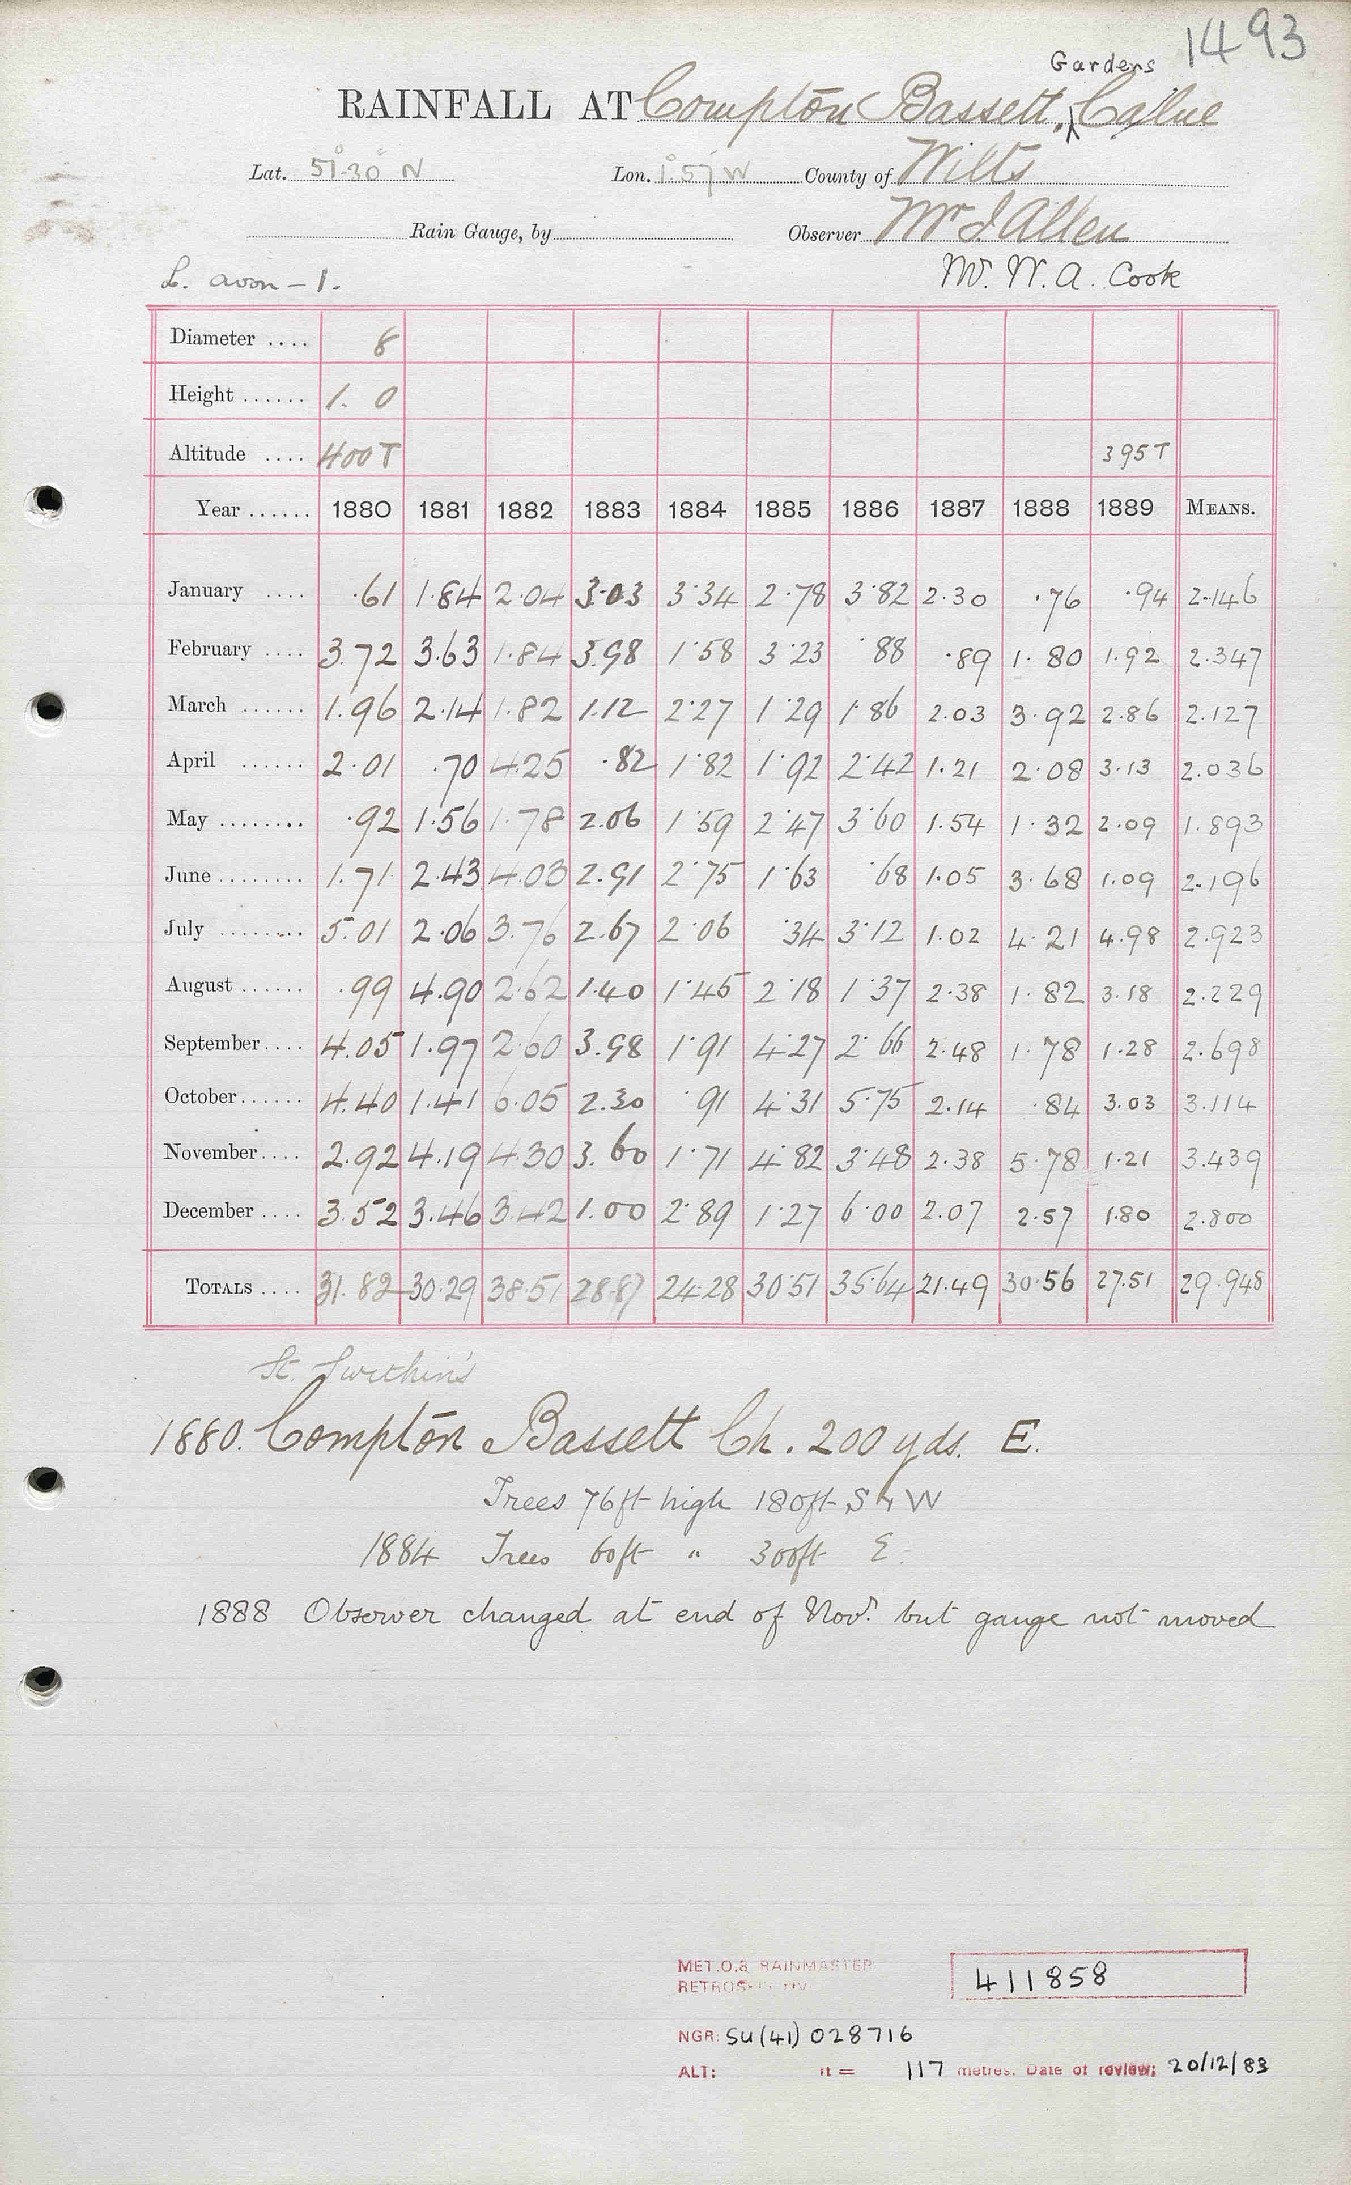 1493
Gardens
RAINFALL AT Compton Bassett, Calne
Lat. 51°30' N Lon. 1°.57' W County of Wilts
Rain Gauge, by Observer Mr J Allen
L. avon - 1. Mr. W. A. Cook
Diameter .... 8
Height ...... 1. 0
Altitude .... 400T 395T
Year ...... 1880 1881 1882 1883 1884 1885 1886 1887 1888 1889 MEANS.
January .... .61 1.84 2.04 3.03 3.34 2.78 3.82 2.30 .76 .94 2.146
February .... 3.72 3.63 1.84 3.98 1.58 3.23 .88 .89 1.80 1.92 2.347
March ...... 1.96 2.14 1.82 1.12 2.27 1.29 1.86 2.03 3.92 2.86 2.127
April ...... 2.01 .70 4.25 .82 1.82 1.92 2.42 1.21 2.08 3.13 2.036
May ........ .92 1.56 1.78 2.06 1.59 2.47 3.60 1.54 1.32 2.09 1.893
June ........ 1.71 2.43 4.03 2.91 2.75 1.63 .68 1.05 3.68 1.09 2.196
July ........ 5.01 2.06 3.76 2.67 2.06 .34 3.12 1.02 4.21 4.98 2.923
August ...... .99 4.90 2.62 1.40 1.45 2.18 1.37 2.38 1.82 3.18 2.229
September .... 4.05 1.97 2.60 3.98 1.91 4.27 2.66 2.48 1.78 1.28 2.698
October ...... 4.40 1.41 6.05 2.30 .91 4.31 5.75 2.14 .84 3.03 3.114
November .... 2.92 4.19 4.30 3.60 1.71 4.82 3.48 2.38 5.78 1.21 3.439
December .... 3.52 3.46 3.42 1.00 2.89 1.27 6.00 2.07 2.57 1.80 2.800
TOTALS .... 31.82 30.29 38.51 28.87 24.28 30.51 35.64 21.49 30.56 27.51 29.948
St. Swithin's
1880. Compton Bassett Ch. 200 yds. E.
Trees 76ft high 180ft S & W
1884 Trees 60ft " 300ft E.
1888 Observer changed at end of Novr. but gauge not moved
MET.O.8 RAINMASTER
411858
NGR: SU(41) 028716
ALT: ft = 117 metres. Date of review: 20/12/83